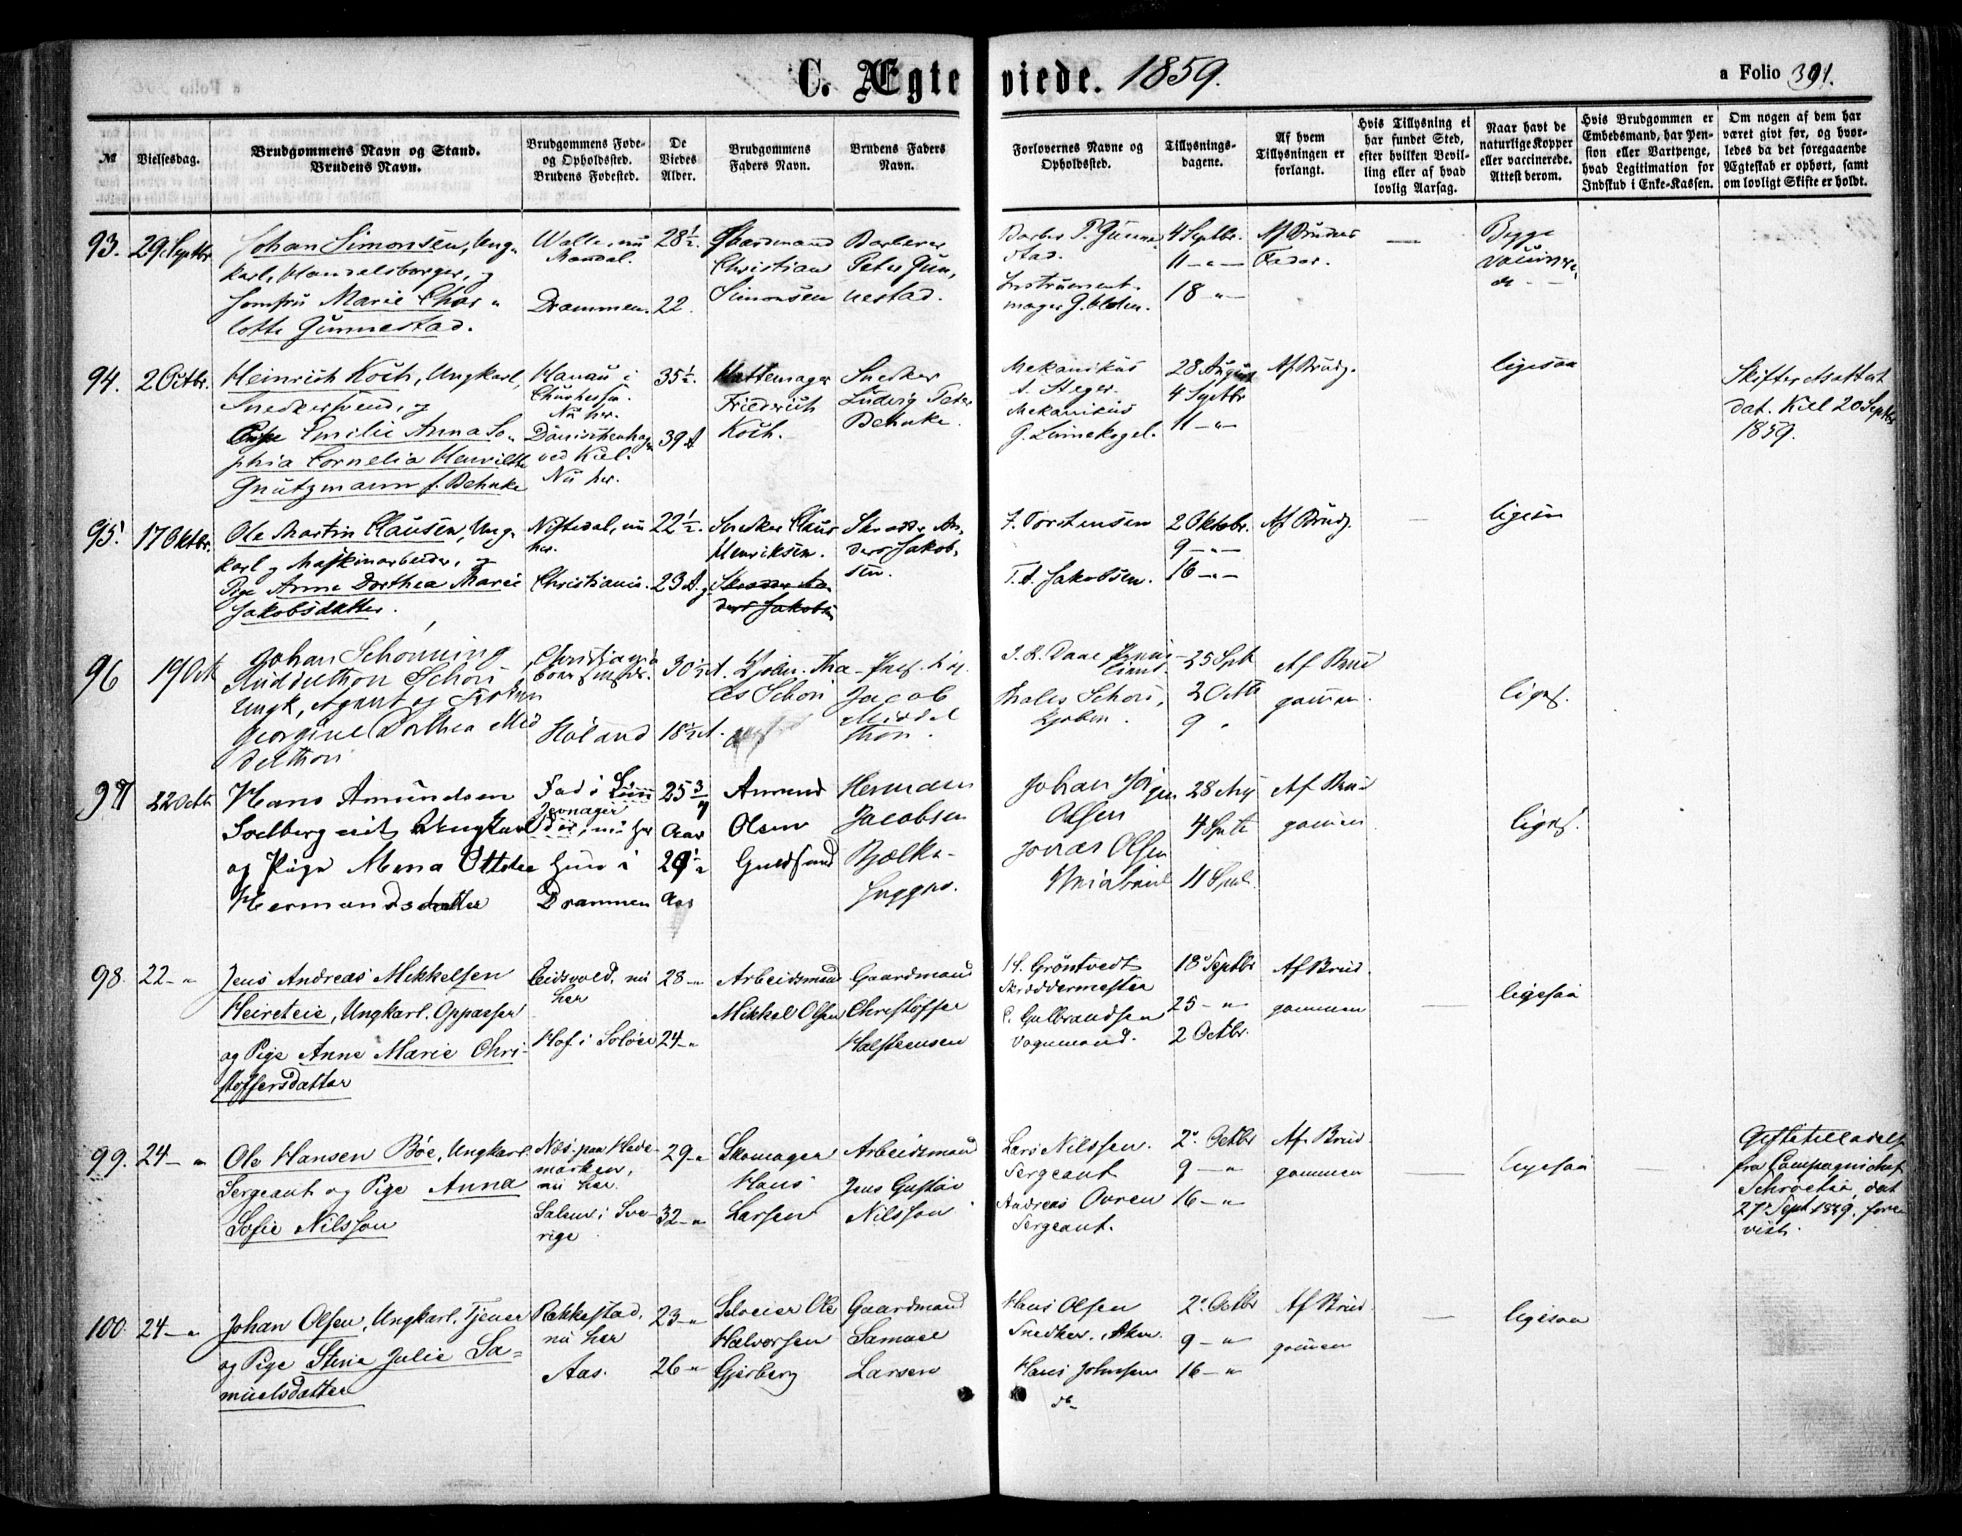 C. Ægteviede. 1859.
a Folio 391.
№
Vielsesdag.
Brudgommens Navn og Stand.
Brudens Navn.
Brudgommens Føde-
og Opholdssted.
Brudens Fødested.
De
Viedes
Alder.
Brudgommens
Faders Navn.
Brudens Faders
Navn.
Forlovernes Navne og
Opholdssted.
Tillysnings-
dagene.
Af hvem
Tillysningen er
forlangt.
Hvis Tillysning ei
har fundet Sted,
efter hvilken Bevil-
ling eller af hvad
lovlig Aarsag.
Naar havt de
naturlige Kopper
eller vaccinerede.
Attest derom.
Hvis Brudgommen er
Embedsmand, har Pen-
sion eller Vartpenge,
hvad Legitimation for
Indskud i Enke-Kassen.
Om nogen af dem har
været givt før, og hvor-
ledes da det foregaaende
Ægteskab er ophørt, samt
om lovligt Skifte er holdt.
93.
29 Septbr
Johan Simonsen, Ung-
karl, Handelsborger, og
Jomfru Marie Char-
lotte Gunnestad.
Walle, nu
Mandal.
Drammen.
28½.
22.
Gaardmand
Christian
Simonsen
Barberer
Peter Gun-
nestad.
Barber P. Gunne-
stad.
Instrument-
mager G. Olsen.
4 Septbr.
11 – " –
18 – " –
Af Brudens
Fader.
Begge
94.
2 Octbr.
Heinrich Koch, Ungkarl,
Snedkersvend, og
Emilie Anna So-
phia Cornelia Henriette
Gnutzmann f. Behnke
Hanau i
Churhessen.
Nu her.
Dänischenhagen
ved Kiel.
Nu her.
35½.
39 A
Hattemager
Friedrich
Koch.
Snedker
Ludvig Peter
Behnke.
Mekanikus
A. Steger.
Mekanikus
G. Linnekogel.
28 August
4 Septbr
11 – " –
Af Brudg.
ligesaa
Skifteratattest
dat. Kiel 20 Septbr
1859.
95.
17 Oktbr.
Ole Martin Clausen, Ung-
karl og Maskinarbeider, og
Pige Anne Dorthea Marie
Jakobsdatter.
Nittedal, nu
her.
Christiania.
22½.
23 A. g.
Snedker Claus
Henriksen.
Skræder An-
ders Jakobsen
Skræder An-
ders Jakob-
sen.
J. Torstensen
T. A. Jakobsen.
2 Oktobr.
9 – " –
16 – " –
Af Brudg.
ligesaa
96
19 Oct
Johan Schønning
Schiøn
Ungk, Agent og Frøken
Georgine Dorthea Mid
delthon
Christiania
Høland
30½ A.
18½ A.
Kjøbm. Tha-
Jacob
Middel
thon.
25 Sept
2 Octb
9 "
Af Brud
gommen.
ligesf.
97
22 Octb
Hans Amundsen
Soelberg eit. Ungkarl
og Pige Mena Ottelie
Hermandsdatter
Fad i
i
Drammen
25 3/4
Aar
Aar
Amund
Olsen
Herman
Jacobsen
Johan Jørgen
Olsen
Jonas Olsen
28 Aug
4 Septb
11 Septb.
Af Brud
gommen
ligesf.
98.
22 – "
Jens Andreas Mikkelsen
Heireteie, Ungkarl. Oppasser
og Pige Anne Marie Chri-
stoffersdatter
Eidsvold, nu
her
Hof i Soløer
28 – "
24 – "
Arbeidsmand
Mikkel Olsen
Gaardmand
Christoffer
Halsteensen
H. Grøntvedt
Skræddermester
C. Gulbrandsen
Vognmand.
18 Septbr
25 – "
2 Octbr.
Af Brud-
gommen
ligesaa
99.
24 – "
Ole Hansen Bøe, Ungkarl.
Sergeant og Pige Anna
Sofie Nilsson
Næs paa Hede-
marken,
nu her.
Salem i Sve-
rige.
29 – "
32 – "
Skomager
Hans
Larsen
Arbeidsmand
Jens Gustav
Nilsson
Lars Nilssen.
Sergeant
Andreas Ovren
Sergeant.
2. Octbr
9 – "
16 – "
Af Brud-
gommen
ligesaa
Giftetilladelse
fra Compagnichef
Schrøeter, dat
27 Sept 1859, fore-
vist.
100.
24 – "
Johan Olsen, Ungkarl. Tjener
og Pige Stina Julie Sa-
muelsdatter
Rakkestad,
nu her
Aas.
23 – "
26 – "
Seloeier Ole
Halvorsen
Gjerberg
Gaardmand
Samuel
Larsen
Hans Olsen
Snedker. Aker.
Hans Johnsen
2. Octbr
9 – "
16 – "
Af Brud-
gommen
ligesaa